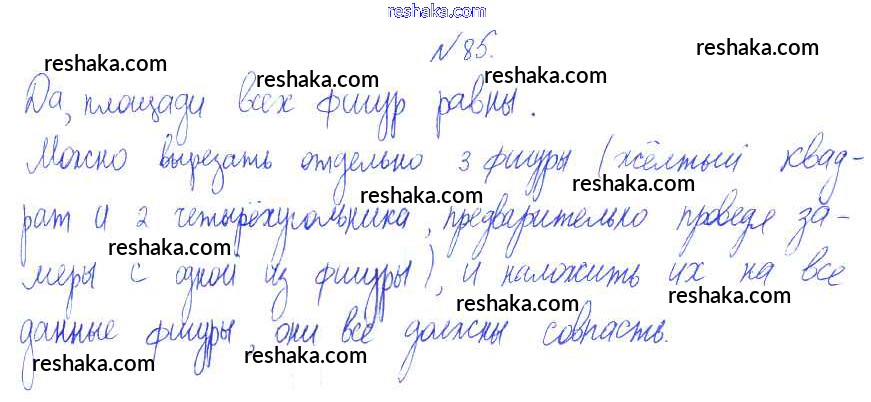 reshaka.com
№85.
reshaka.com reshaka.com reshaka.com reshaka.com
Да, площади всех фигур равны.
Можно вырезать отдельно 3 фигуры (жёлтый квад-
reshaka.com reshaka.com
рат и 2 четырёхугольника, предварительно проведя за-
reshaka.com
меры с одной из фигуры), и наложить их на все
reshaka.com reshaka.com
данные фигуры, они все должны совпасть.
reshaka.com reshaka.com